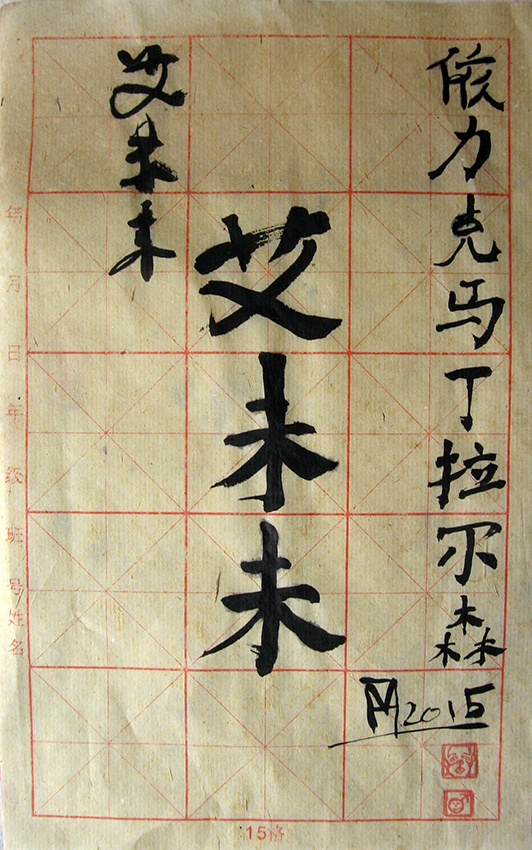 力克马丁拉尔森
2015
艾未未
艾未未
年 月 日 年 级 班 号 姓名
15格